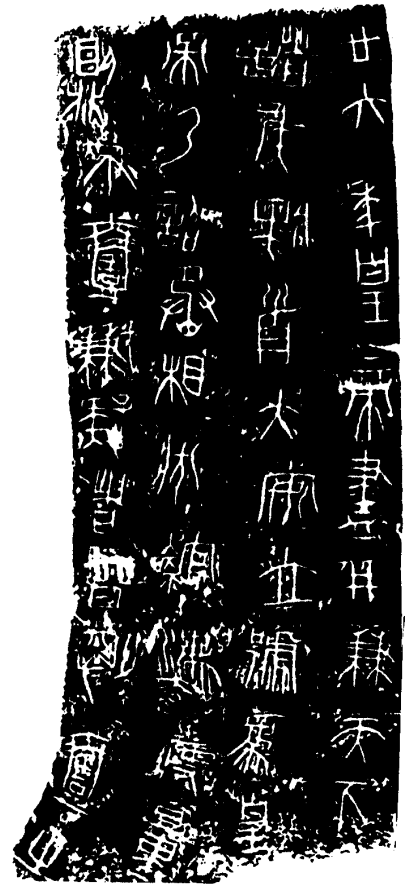 廿六年皇帝盡并兼天下
諸侯黔首大安立號為皇
帝乃詔丞相狀綰法度量
則不壹歉疑者皆明壹之